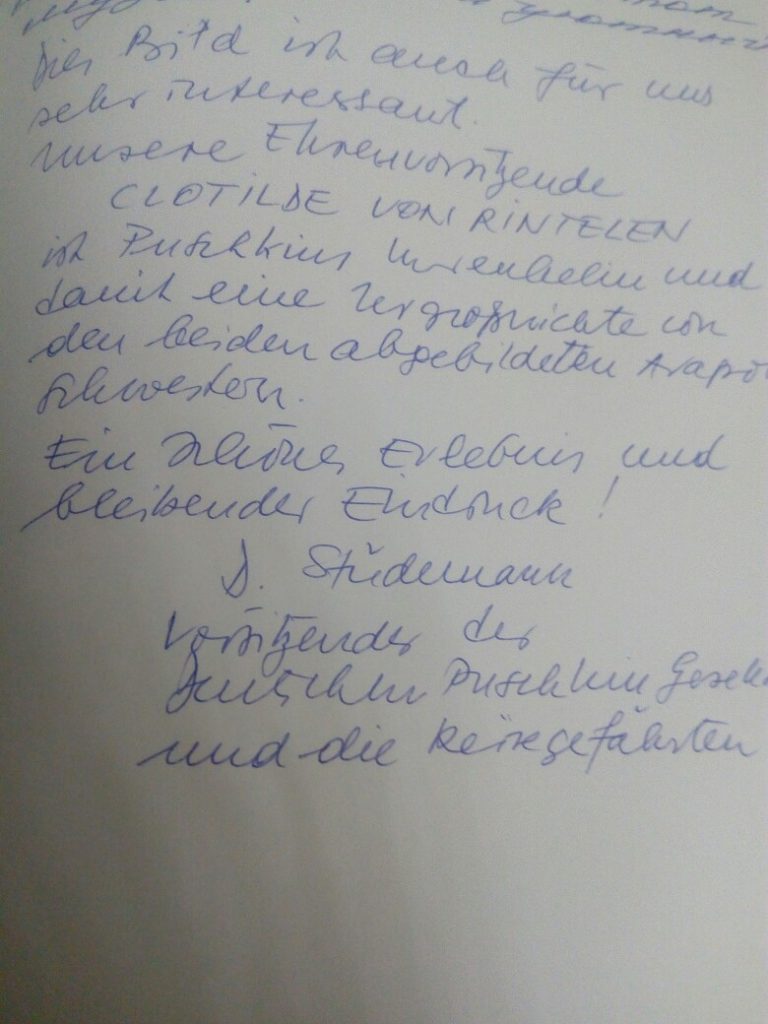 Dies Bild ist auch für uns
sehr interessant.
Unsere Ehrenvorsitzende
CLOTILDE VON RINTELEN
ist Puschkins Ururenkelin und
damit eine Urgroßnichte von
den beiden abgebildeten Arapo
Schwestern.
Ein schönes Erlebnis und
bleibender Eindruck!
D. Stüdemann
Vorsitzender der
Deutschen Puschkin Gesel
und die Reisegefährten